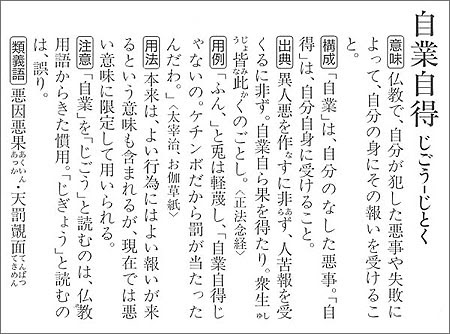 自業自得 じごう－じとく
意味 仏教で、自分が犯した悪事や失敗に
よって、自分の身にその報いを受けるこ
と。
構成 「自業」は、自分のなした悪事。「自
得」は、自分自身に受けること。
出典 異人悪を作すに非ず、人苦報を受
くるに非ず。自業自ら果を得たり。衆生
皆此くのごとし。〈正法念経〉
用例 「ふん。」と兎は軽蔑し、「自業自得じ
ゃないの。ケチンボだから罰が当たった
んだわ。」〈太宰治、お伽草紙〉
用法 本来は、よい行為にはよい報いが来
るという意味も含まれるが、現在では悪
い意味に限定して用いられる。
注意 「自業」を「じごう」と読むのは、仏教
用語からきた慣用。「じぎょう」と読むの
は、誤り。
類義語 悪因悪果・天罰覿面